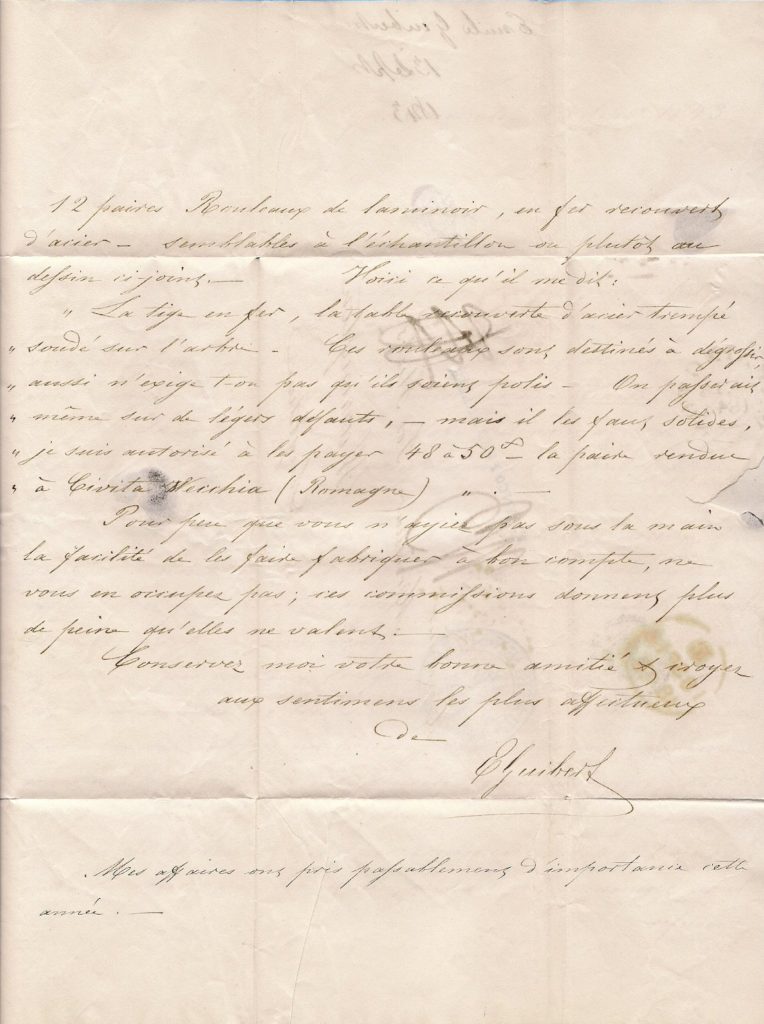 12 paires Rouleaux de laminoir, en fer recouvert
d'acier – semblables à l'échantillon ou plutôt au
dessin ci-joint. – Voici ce qu'il me dit:
" La tige en fer, la table recouverte d'acier trempé
" soudé sur l'arbre – Ces rouleaux sont destinés à dégrossir
" aussi n'exige t-on pas qu'ils soient polis – On passerait
" même sur de légers défauts, – mais il les faut solides,
" je suis autorisé à les payer 48 à 50 – la paire rendue
" à Civita Vecchia (Romagne) " . –
Pour peu que vous n'ayiez pas sous la main
la facilité de les faire fabriquer à bon compte, ne
vous en occupez pas; ces commissions donnent plus
de peine qu'elles ne valent. –
Conservez moi votre bonne amitié & croyez
aux sentimens les plus affectueux
de
E Guibert
Mes affaires ont pris passablement d'importance cette
année. –